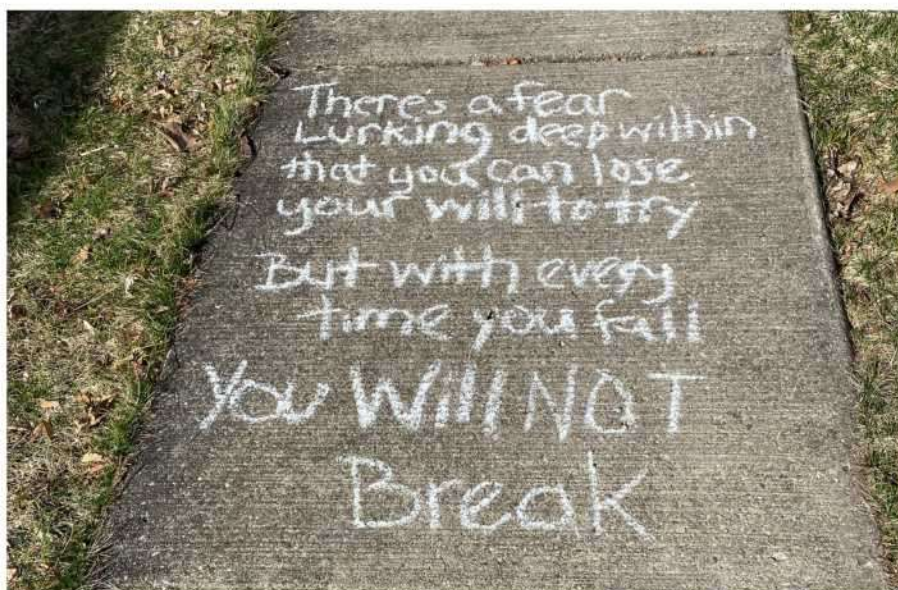 There's a fear
Lurking deep within
that you can lose
your will to try
But with every
time you fall
You Will NOT
Break